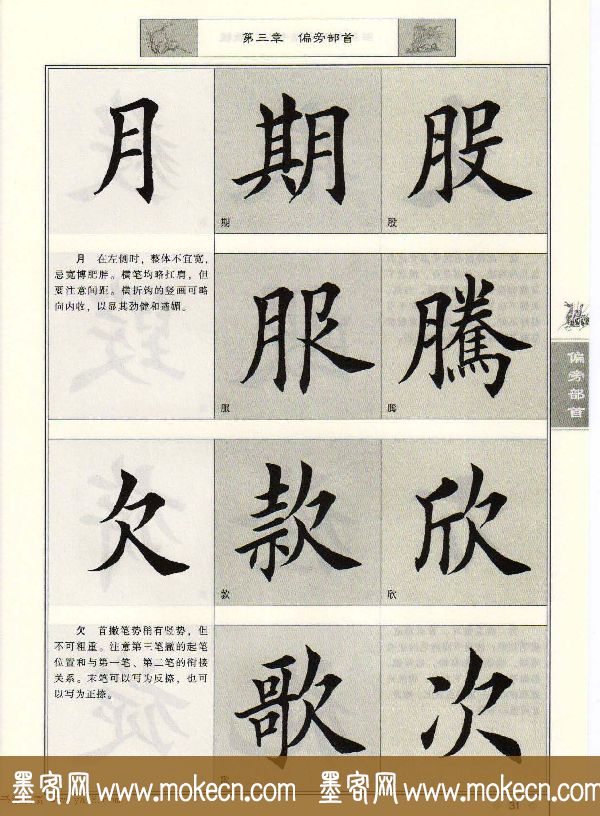 第三章 偏旁部首
月 期 股
期 股
月 在左侧时，整体不宜宽，
忌宽博肥胖。横笔均略扛肩，但
要注意间距。横折钩的竖画可略
向内收，以显其劲健和遒媚。
服 騰
服 腾
偏旁部首
欠 款 欣
款 欣
欠 首撇笔势稍有竖势，但
不可粗重。注意第三笔撇的起笔
位置和与第一笔、第二笔的衔接
关系。末笔可以写为反捺，也可
以写为正捺。
歌 次
墨客网 www.mokecn.com 墨客网 www.mokecn.com
31